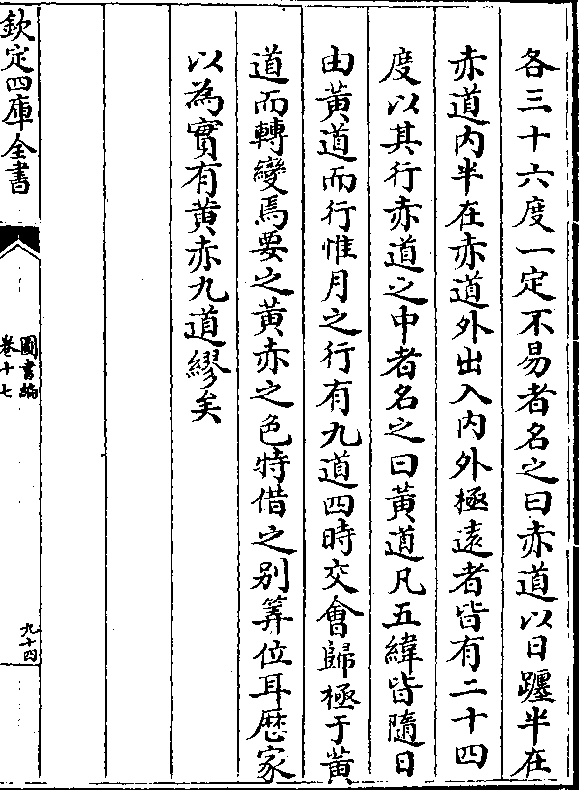 各三十六度一定不易者名之曰赤道以日躔半在
赤道内半在赤道外出入内外極遠者皆有二十四
度以其行赤道之中者名之曰黃道凡五緯皆隨日
由黃道而行惟月之行有九道四時交會歸極于黃
道而轉變焉要之黃赤之色特借之別筭位耳厯家
以為實有黃赤九道繆矣
欽定四庫全書
圖書編
卷十七
九十四